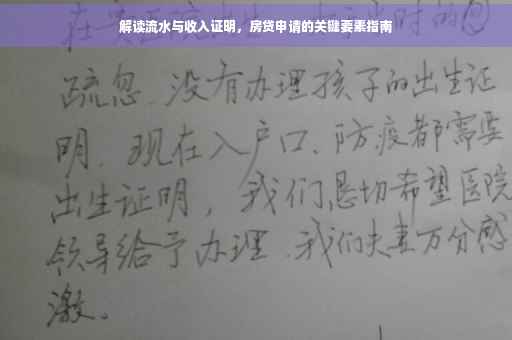 解读流水与收入证明，房贷申请的关键要素指南
疏忽、没有办理孩子的出生证
明、现在入户口、防疫都需要
出生证明，我们恳切希望医院
领导给予办理、我们夫妻万分感
激。